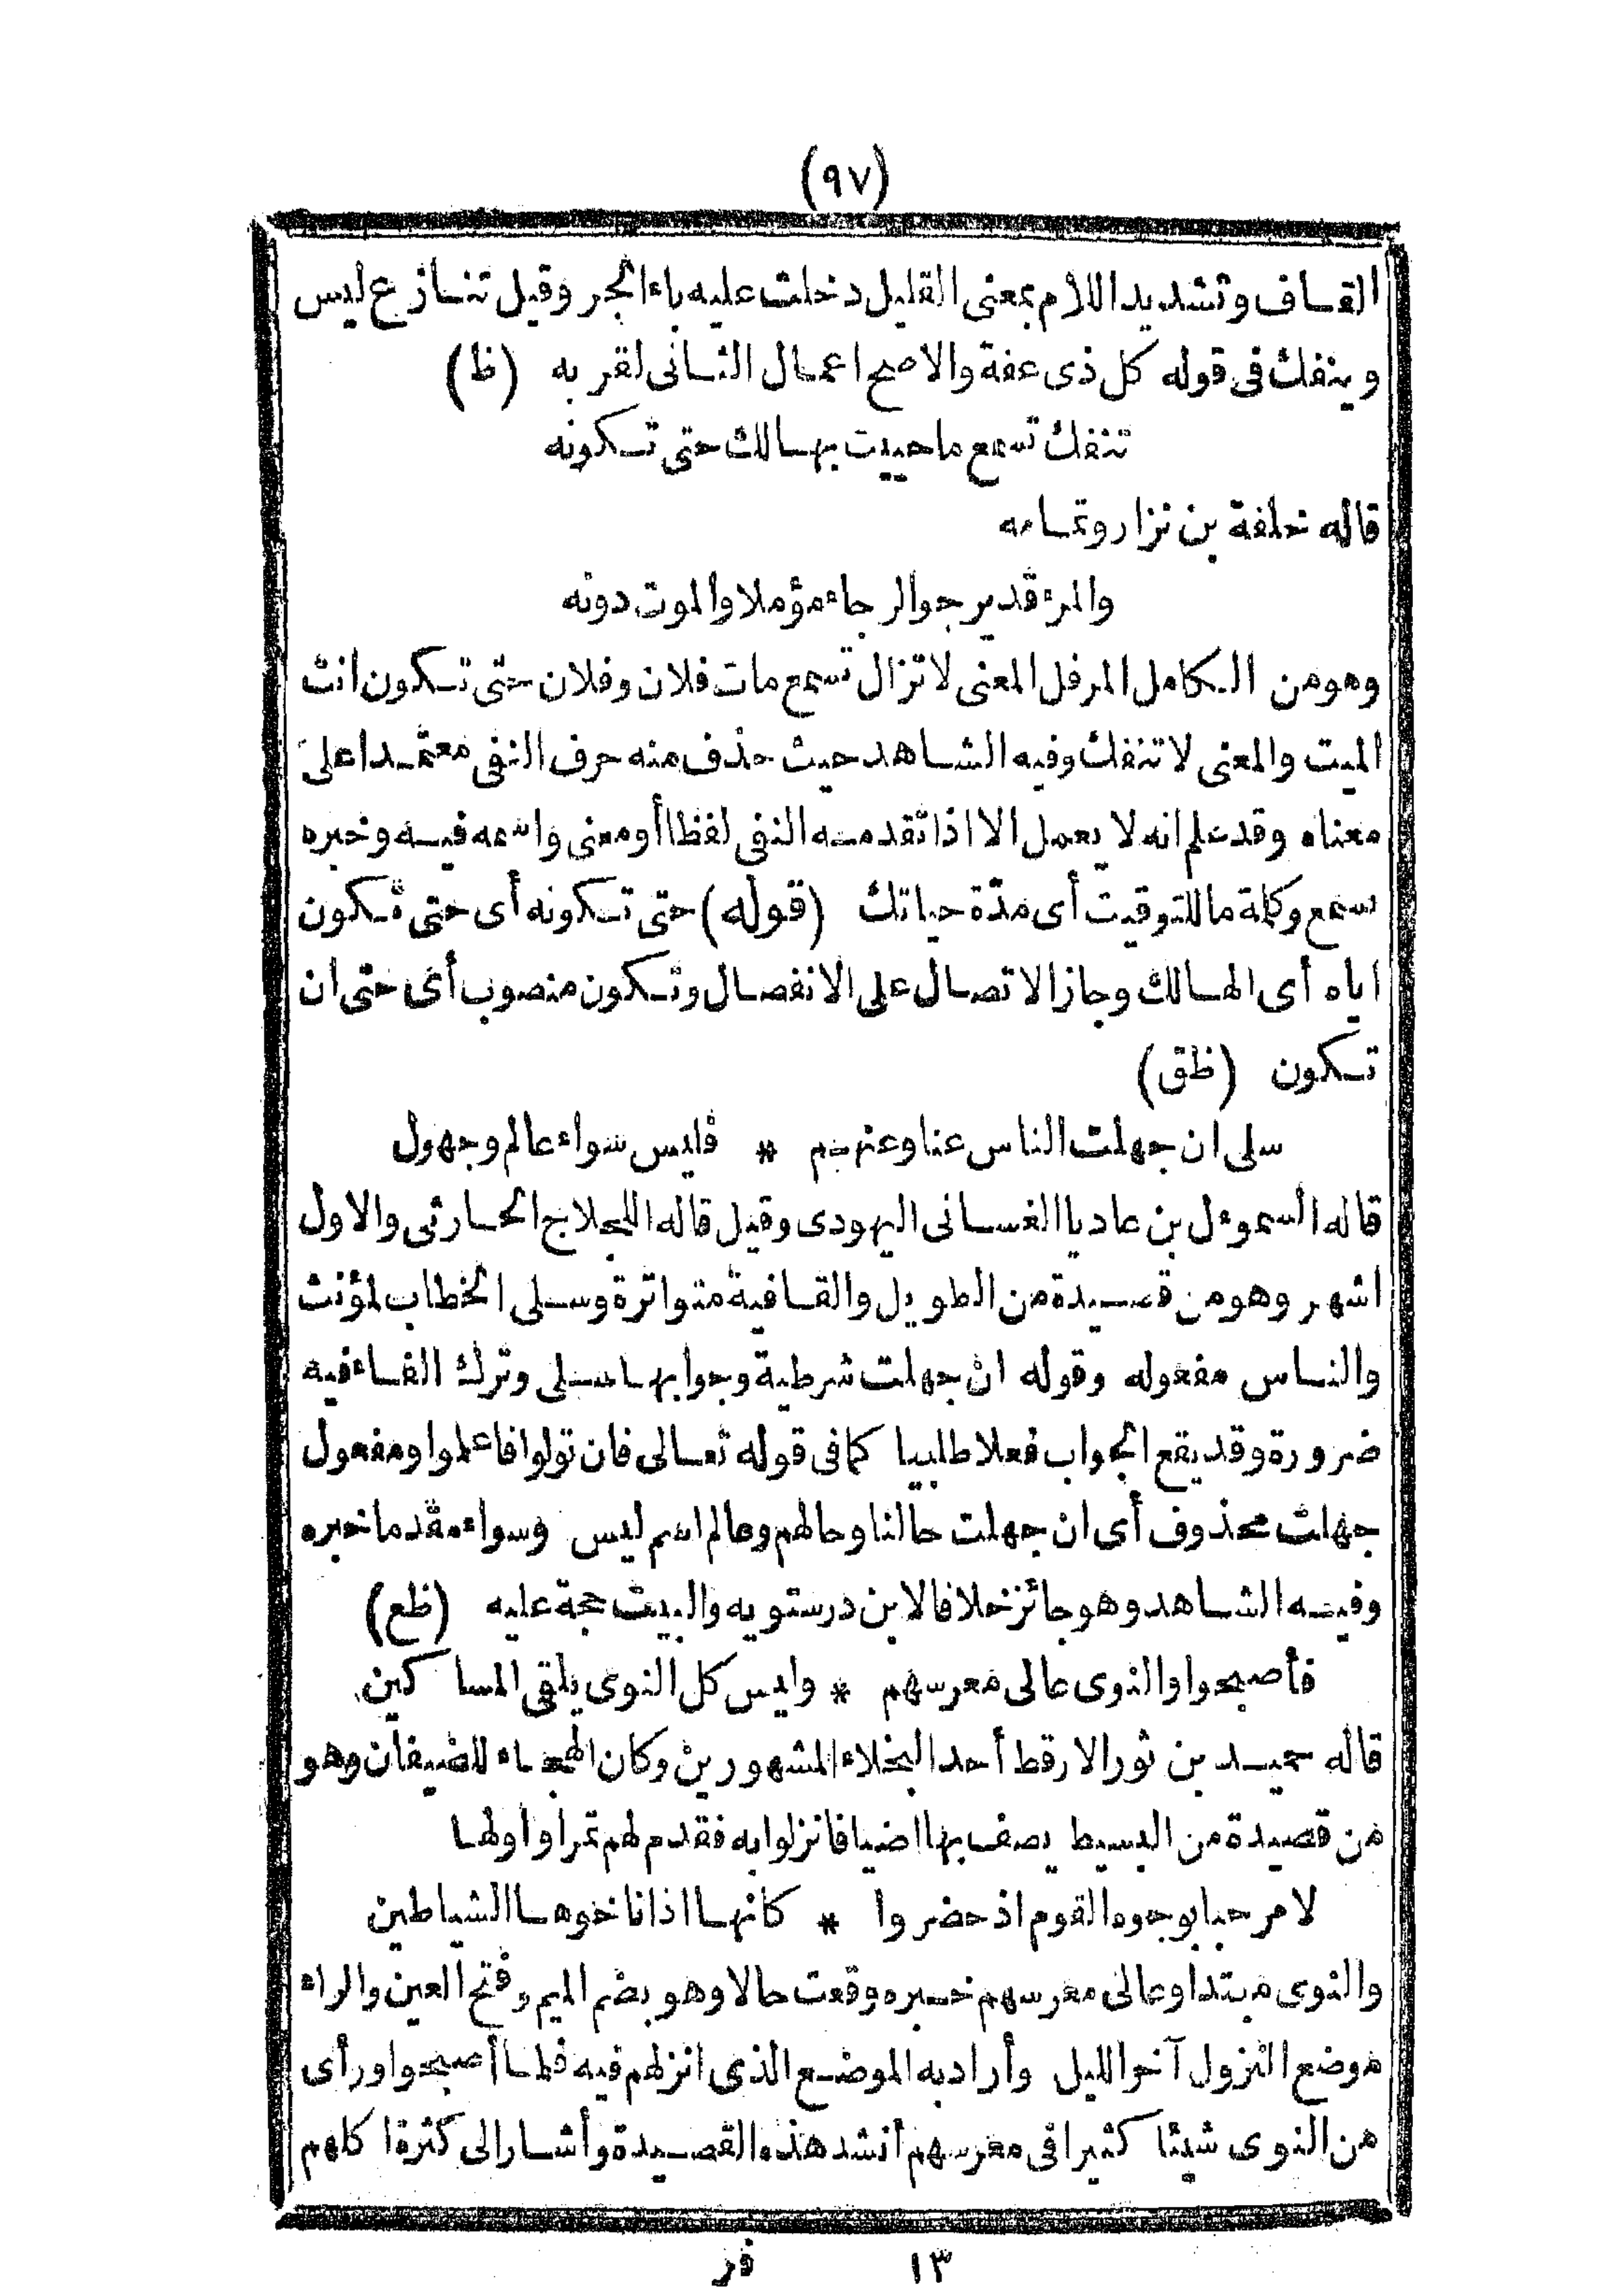 (٩٧)
القاف وتشديد اللام بمعنى القليل دخلت عليه باء الجر وقيل تنازع ليس
وينفك فى قوله كل ذى عفة والاصح اعمال الثانى لقربه (ظ)
تنفك تسمع ما حييت بهالك حتى تكونه
قاله خلفة بن نزار وتمامه
والمرء قد يرجو الرجاء مؤملا والموت دونه
وهو من الكامل المرفل المعنى لا تزال تسمع مات فلان وفلان حتى تكون انت
الميت والمعنى لا تنفك وفيه الشاهد حيث حذف منه حرف النفى معتمدا على
معناه وقد علم انه لا يعمل الا اذا تقدمه النفى لفظا أو معنى واسمه فيه وخبره
تسمع وكلمة ما للتوقيت أى مدّة حياتك (قوله) حتى تكونه أى حتى تكون
اياه أى الهالك وجاز الاتصال على الانفصال وتكون منصوب أى حتى ان
تكون (ظق)
سلى ان جهلت الناس عنا وعنهم * فليس سواء عالم وجهول
قاله السموءل بن عاديا الغسانى اليهودى وقيل قاله اللجلاج الحارثى والاول
اشهر وهو من قصيدة من الطويل والقافية متواترة وسلى الخطاب لمؤنث
والناس مفعوله وقوله ان جهلت شرطية وجوابها سلى وترك الفاء فيه
ضرورة وقد يقع الجواب فعلا طلبيا كما فى قوله تعالى فان تولوا فاعلموا ومفعول
جهلت محذوف أى ان جهلت حالنا وحالهم وعالم اسم ليس وسواء مقدما خبره
وفيه الشاهد وهو جائز خلافا لابن درستويه والبيت حجة عليه (ظع)
فأصبحوا والنوى عالى معرسهم * وليس كل النوى يلقى المساكين
قاله حميد بن ثور الارقط أحد البخلاء المشهورين وكان الهجاء للضيفان وهو
من قصيدة من البسيط يصف بها اضيافا نزلوا به فقدم لهم تمرا واولها
لا مرحبا بوجوه القوم اذ حضروا * كانها اذ اناخوها الشياطين
والنوى مبتدا وعالى معرسهم خبره وقعت حالا وهو بضم الميم وفتح العين والراء
موضع النزول آخر الليل وأراد به الموضع الذى انزلهم فيه فلما أصبحوا ورأى
من النوى شيئا كثيرا فى معرسهم أنشد هذه القصيدة وأشار الى كثرة اكلهم
١٣ فر